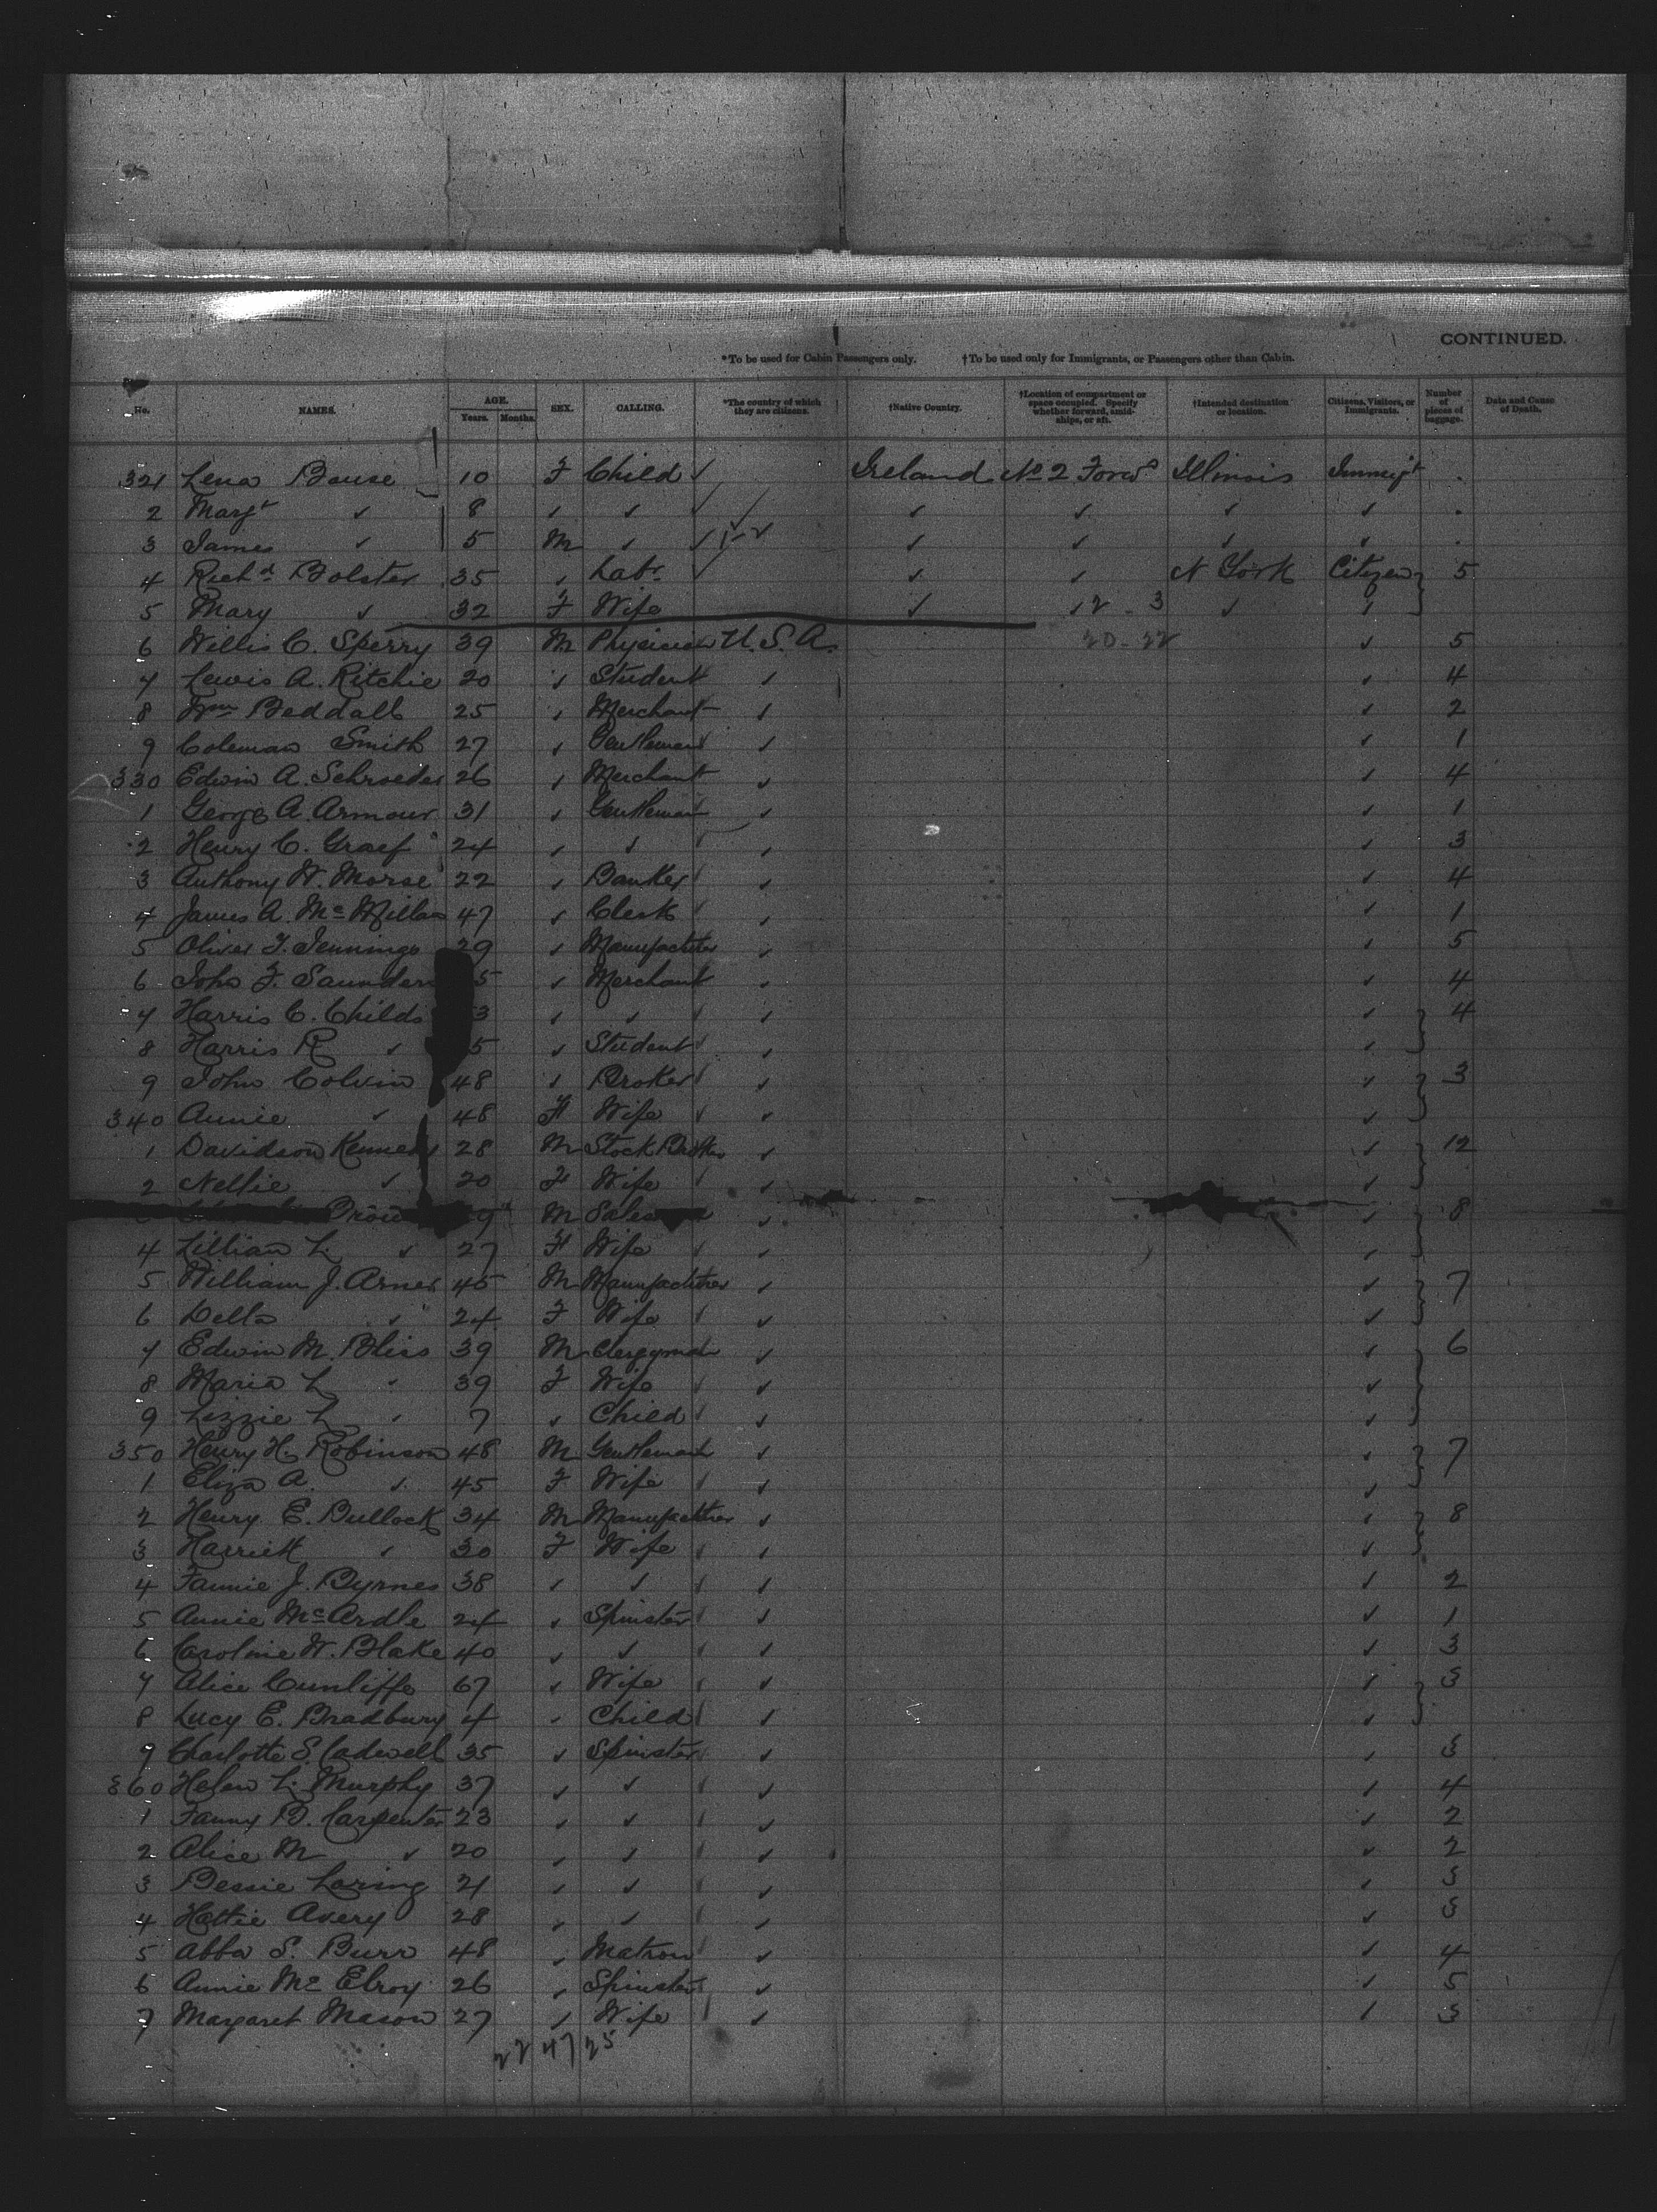 CONTINUED.
*To be used for Cabin Passengers only. †To be used only for Immigrants, or Passengers other than Cabin.
No. NAMES. AGE. Years. Months. SEX. CALLING. *The country of which they are citizens. †Native Country. †Location of compartment or space occupied. Specify whether forward, amidships, or aft. †Intended destination or location. Citizens, Visitors, or Immigrants. Number of pieces of baggage. Date and Cause of Death.
321 Lena Bouse 10 F Child ✓ Ireland No 2 Forwd Illinois Immigt .
2 Margt ✓ 8 ✓ ✓ ✓ ✓ ✓ ✓ ✓ .
3 James ✓ 5 M ✓ ✓ 1-2 ✓ ✓ ✓ ✓ .
4 Richd Bolster 35 ✓ Labr ✓ ✓ ✓ N York Citizen 5
5 Mary ✓ 32 F Wife ✓ ✓ 2 - 3 ✓ ✓
6 Willis C. Sperry 39 M Physician U.S.A. 20-22 ✓ 5
7 Lewis A. Ritchie 20 ✓ Student ✓ ✓ 4
8 Wm Beddall 25 ✓ Merchant ✓ ✓ 2
9 Coleman Smith 27 ✓ Gentleman ✓ ✓ 1
330 Edwin A. Schroeder 26 ✓ Merchant ✓ ✓ 4
1 George A. Armour 31 ✓ Gentleman ✓ ✓ 1
2 Henry C. Graef 24 ✓ ✓ ✓ ✓ 3
3 Anthony W. Morse 22 ✓ Banker ✓ ✓ 4
4 James A. McMillan 47 ✓ Clerk ✓ ✓ 1
5 Oliver G. Jennings 29 ✓ Manufacturer ✓ ✓ 5
6 John F. Saunders 5 ✓ Merchant ✓ ✓ 4
7 Harris C. Childs 3 ✓ ✓ ✓ ✓ 4
8 Harris R ✓ 5 ✓ Student ✓ ✓
9 John Colvin 48 ✓ Broker ✓ ✓ 3
340 Annie ✓ 48 F Wife ✓ ✓
1 Davidson Kennedy 28 M Stock Broker ✓ ✓ 12
2 Nellie ✓ 20 F Wife ✓ ✓
Brow 9 M Sales ✓ ✓ 8
4 Lillian L. ✓ 27 F Wife ✓ ✓
5 William J. Arner 45 M Manufacturer ✓ ✓ 7
6 Della ✓ 24 F Wife ✓ ✓
7 Edwin M. Bliss 39 M Clergyman ✓ ✓ 6
8 Maria L ✓ 39 F Wife ✓ ✓
9 Lizzie L ✓ 7 ✓ Child ✓ ✓
350 Henry H. Robinson 48 M Gentleman ✓ ✓ 7
1 Eliza A. ✓ 45 F Wife ✓ ✓
2 Henry E. Bullock 34 M Manufacturer ✓ ✓ 8
3 Harriett ✓ 30 F Wife ✓ ✓
4 Fannie J. Byrnes 38 ✓ ✓ ✓ ✓ 2
5 Annie McArdle 24 ✓ Spinster ✓ ✓ 1
6 Caroline W. Blake 40 ✓ ✓ ✓ ✓ 3
7 Alice Cunliffe 67 ✓ Wife ✓ ✓ 3
8 Lucy E. Bradbury 4 ✓ Child ✓ ✓
9 Charlotte S. Cadwell 35 ✓ Spinster ✓ ✓ 3
360 Helen L. Murphy 37 ✓ ✓ ✓ ✓ 4
1 Fanny B. Carpenter 23 ✓ ✓ ✓ ✓ 2
2 Alice M ✓ 20 ✓ ✓ ✓ ✓ 2
3 Bessie Loring 21 ✓ ✓ ✓ ✓ 3
4 Hattie Avery 28 ✓ ✓ ✓ ✓ 3
5 Abba S. Burr 48 ✓ Matron ✓ ✓ 4
6 Annie McElroy 26 ✓ Spinster ✓ ✓ 5
7 Margaret Mason 27 ✓ Wife ✓ ✓ 3
22 47 25